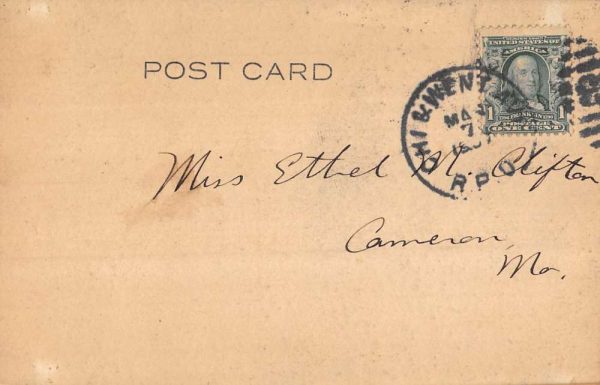 UNITED STATES OF
AMERICA
POST CARD
1 FRANKLIN 1
POSTAGE
ONE CENT
CHI & WEN
7
R.P.O.
Miss Ethel M. Clifton
Cameron,
Mo.